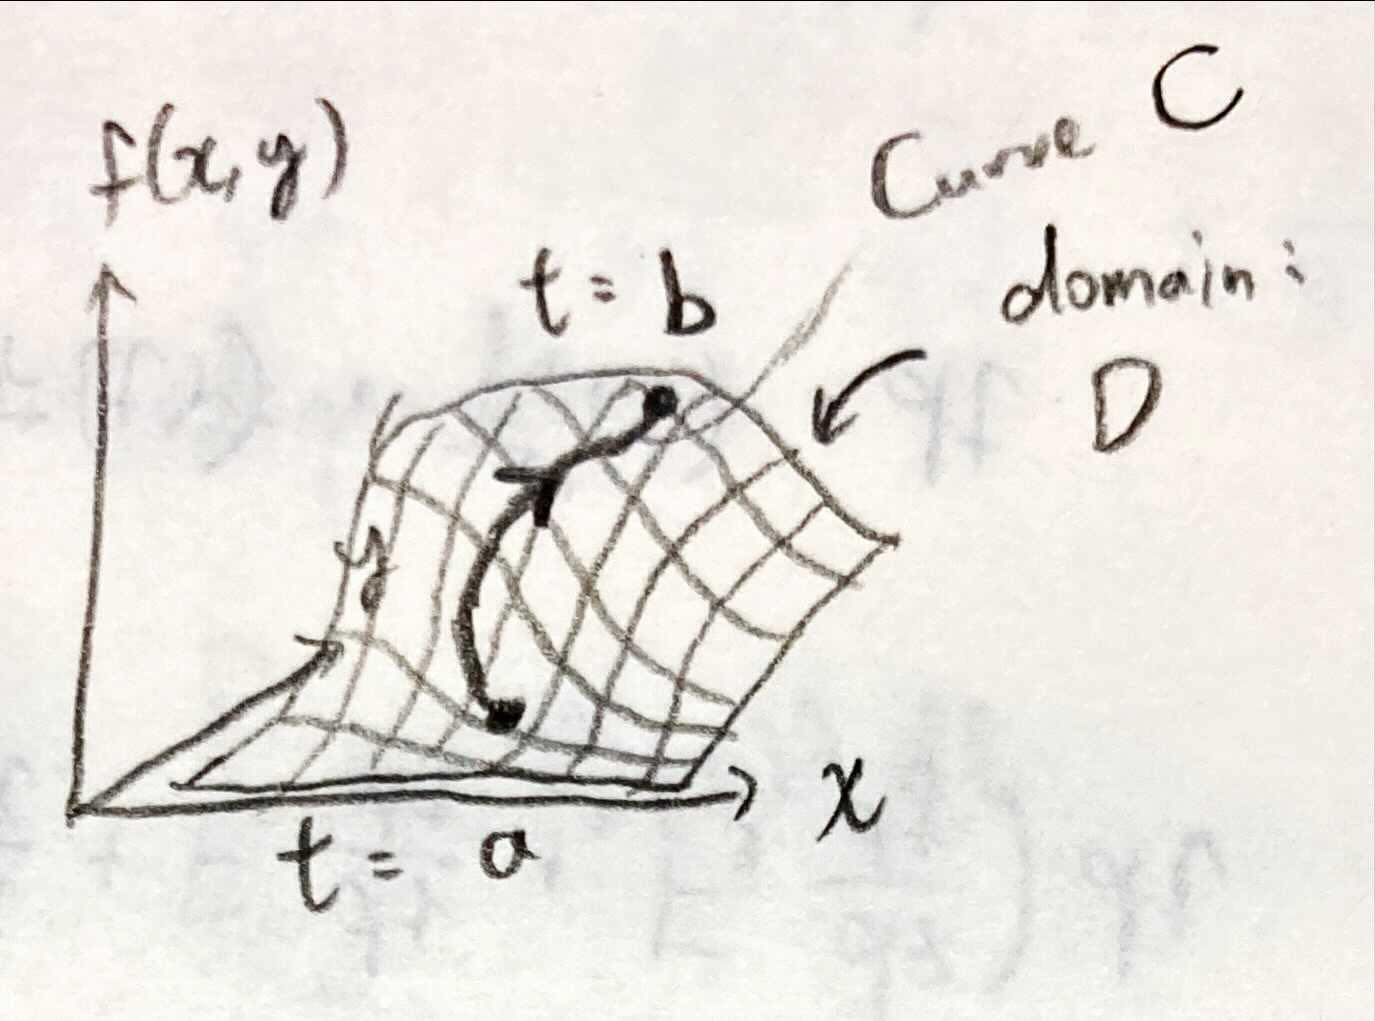 f(x, y)
Curve C
t = b
domain:
D
y
x
t = a